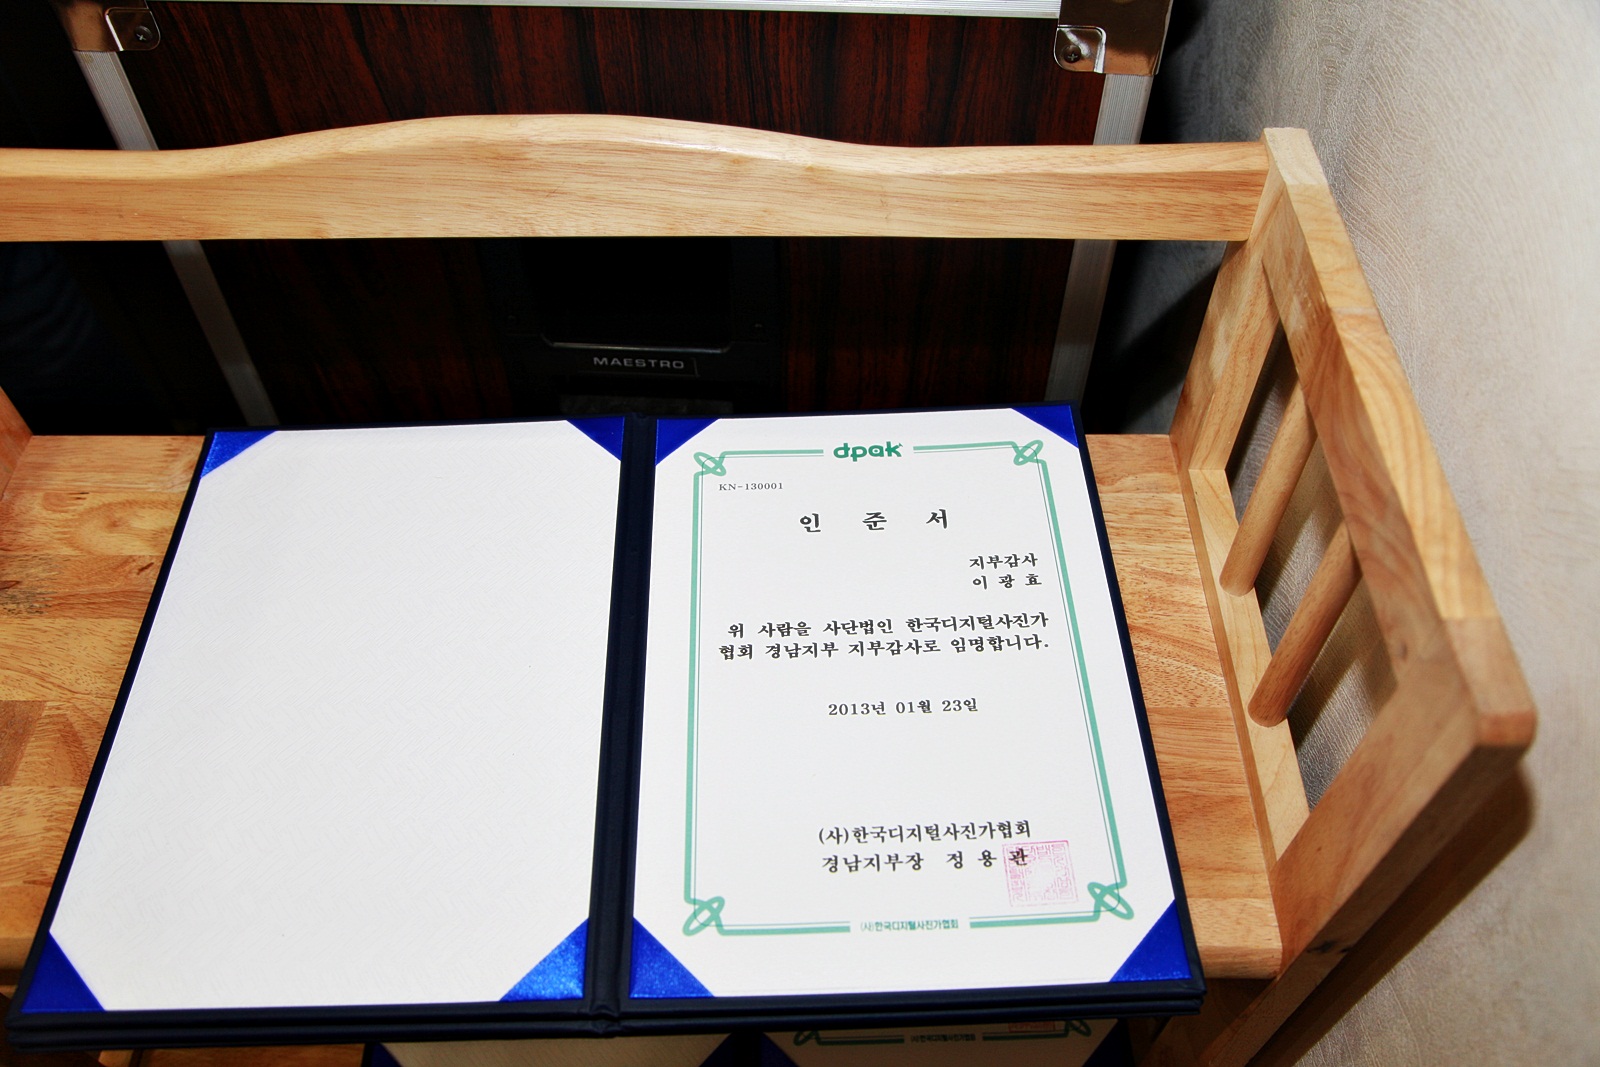 MAESTRO
dpak
KN-130001
인 준 서
지부감사
이 광 효
위 사람을 사단법인 한국디지털사진가
협회 경남지부 지부감사로 임명합니다.
2013년 01월 23일
(사)한국디지털사진가협회
경남지부장 정 용 관
(사)한국디지털사진가협회
(사)한국디지털사진가협회